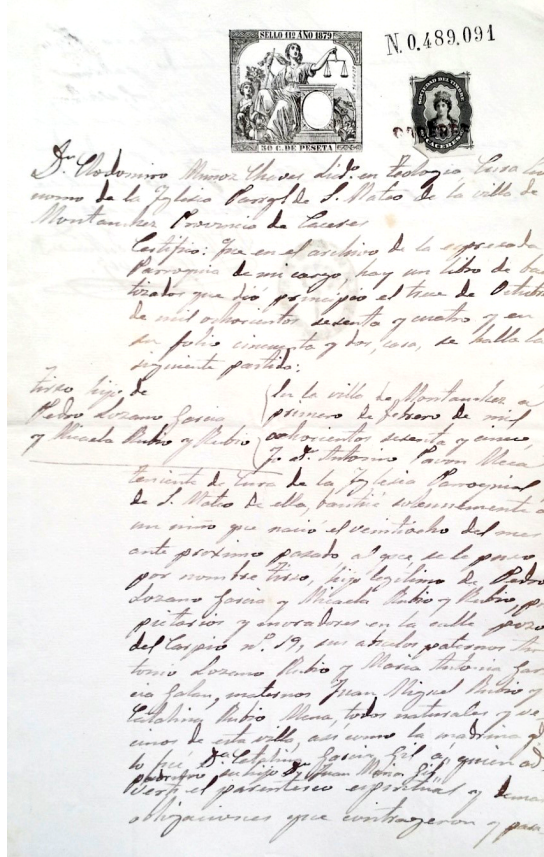 SELLO 11º AÑO 1879
50 C. DE PESETA
N. 0.489.091
SOCIEDAD DEL TIMBRE
CACERES
Dn. Clodomiro Muñoz Chaves Licdo. en Teologia Cura Ecó
nomo de la Yglesia Parrql. de S. Mateo de la villa de
Montanchez Provincia de Caceres
Certifico: Que en el archivo de la espresada
Parroquia de mi cargo, hay un libro de bau
tizados que dió principio el trece de Octubre
de mil ochocientos sesenta y cuatro y en
su folio cincuenta y dos, se halla la
siguiente partida:
Tirso hijo de
Pedro Lozano Garcia
y Micaela Rubio y Rubio
En la villa de Montanchez a
primero de Febrero de mil
ochocientos sesenta y cinco
Antonio
Teniente de Cura de la Yglesia Parroquial
de S. Mateo de ella, bauticé solennemente á
un niño que nació el veintiocho del mes
ante proximo pasado al que se le puso
por nombre Tirso, hijo legítimo de Pedro
Lozano Garcia y Micaela Rubio y Rubio, pro
pietarios y moradores en la calle pozo
del Carpio nº. 19, sus abuelos paternos An
tonio Lozano Rubio y Maria Antonia Gar
cia Galan, maternos Juan Miguel Rubio y
Catalina Rubio Mena, todos naturales y ve
cinos de esta villa, asi como la madrina q
lo fué Dª. Garcia Gil á quien ad
padrino su hijo Dn. Juan Maria Gil
vertí el parentesco espiritual y demas
obligaciones que contrageron y para